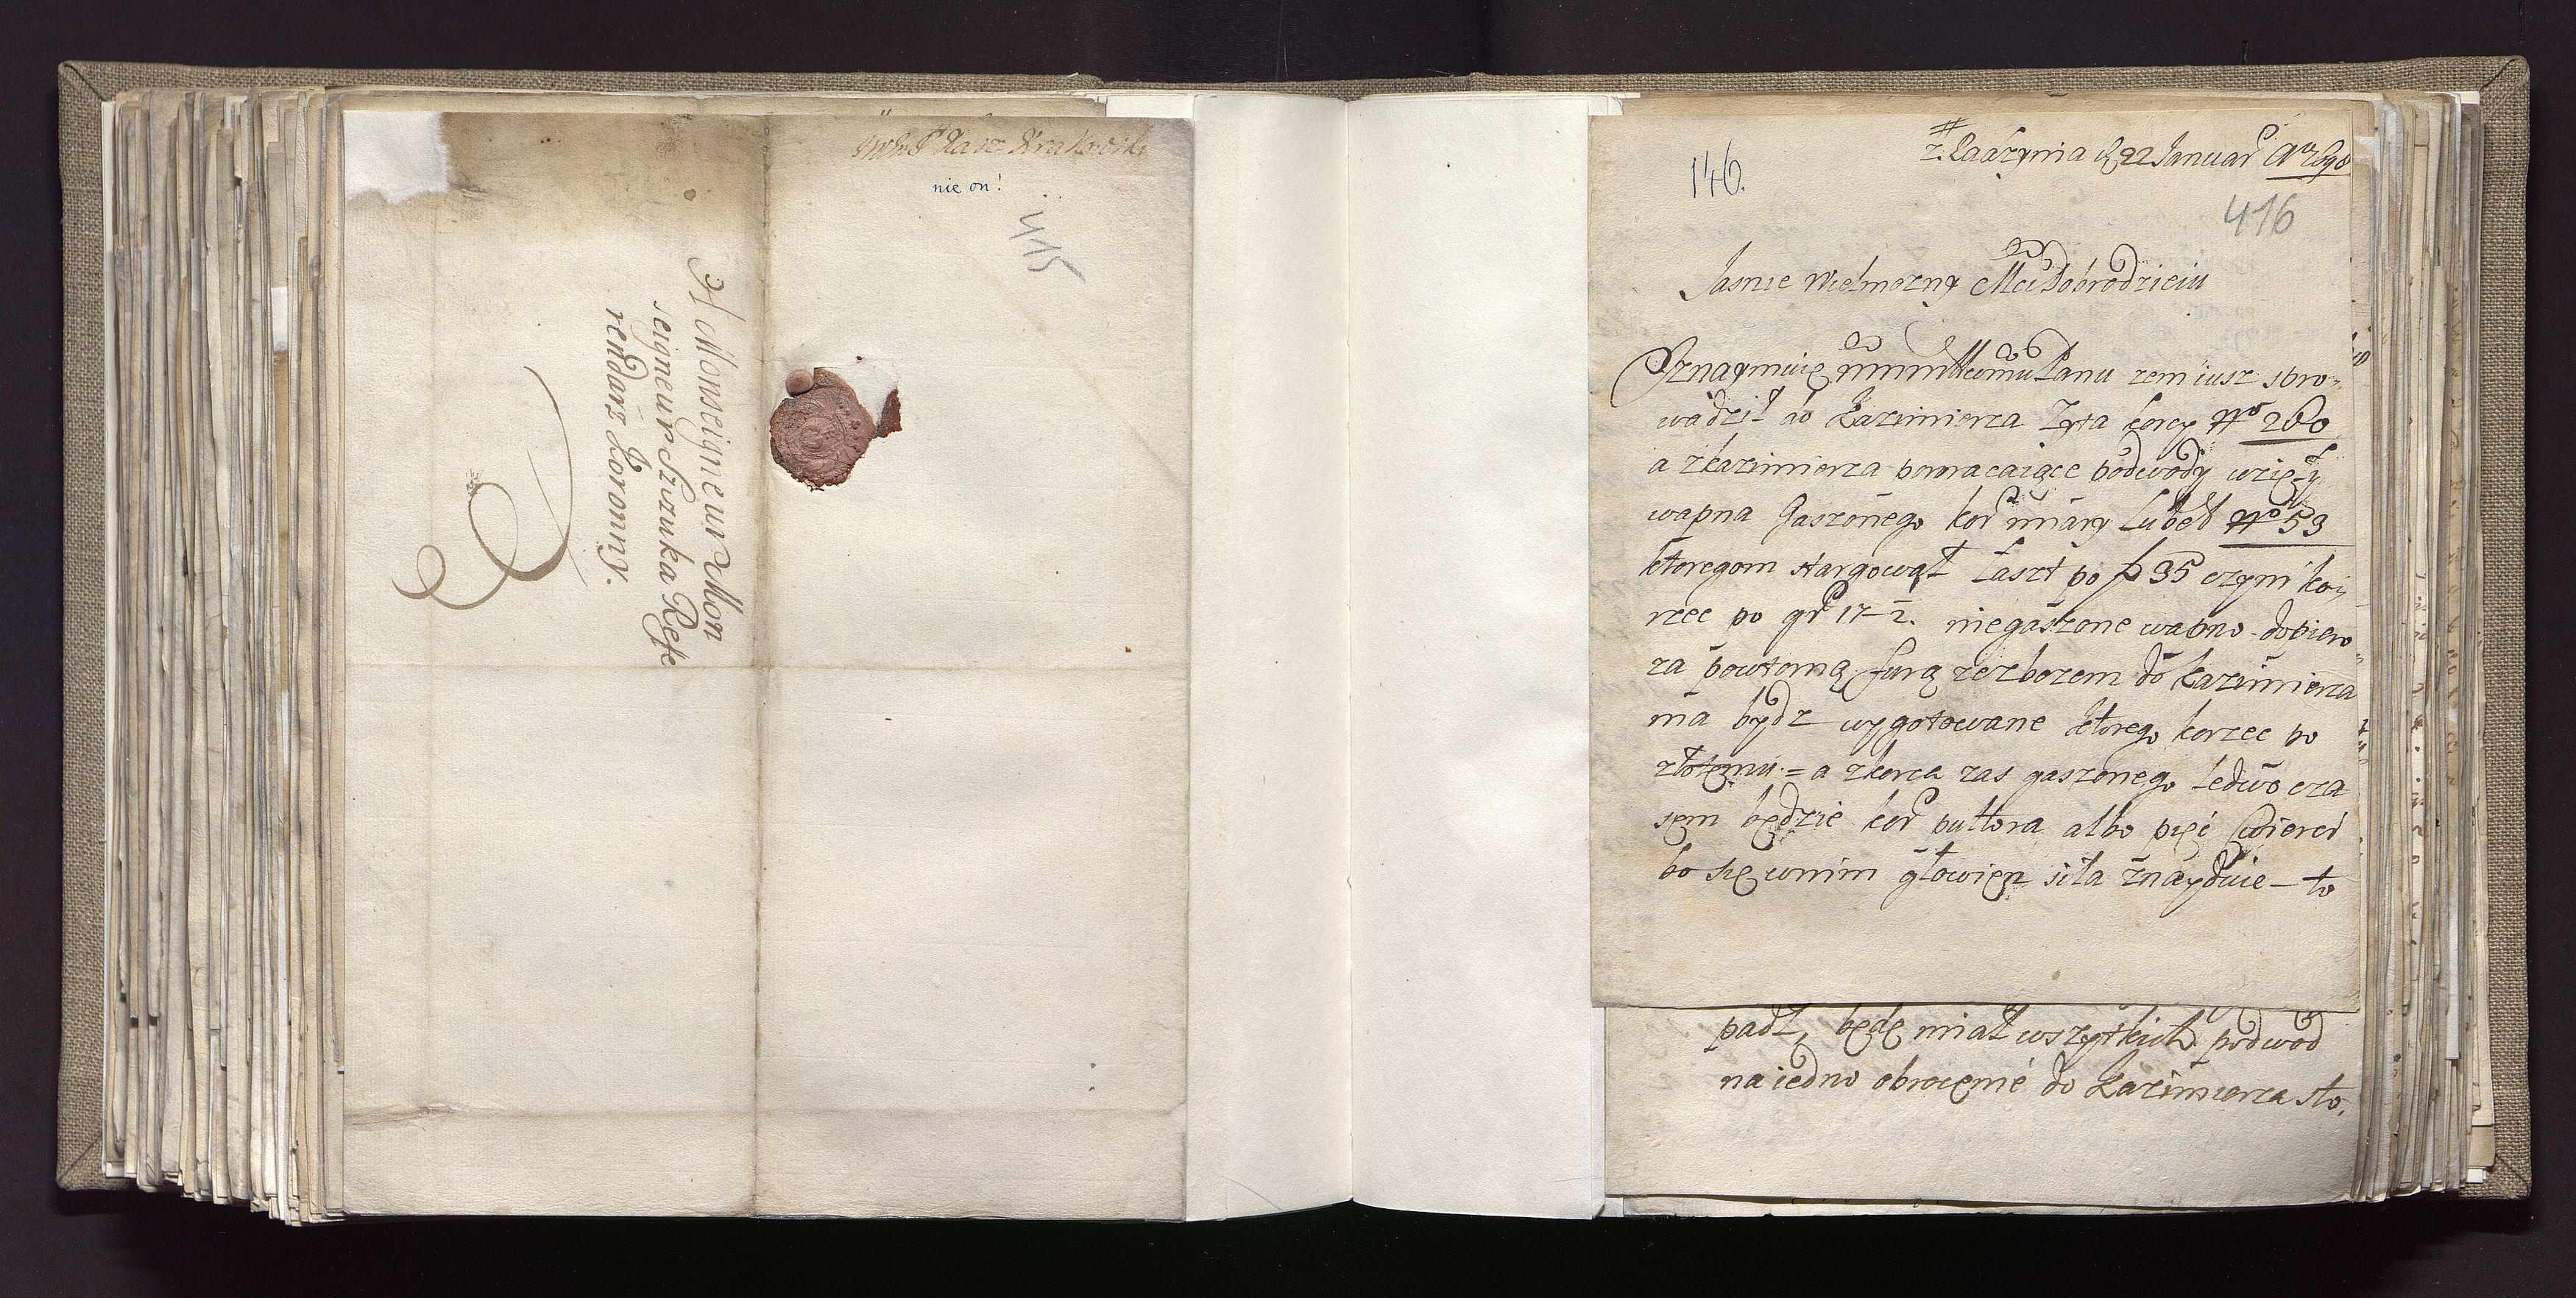 Kasz Krakowski
nie on!
415
A Monseigneur Mon
seigneur Szczuka Refe
rendarz Koronny.
146.
22 Januar
416
Jasnie Wielmozny Mci Dobrodzieiu
Oznaymuię Panu zem iusz spro-
wadził do Kazimierza Zyta korcy No 260
a zkazimierza powracaiące podwody wzięły
wapna gaszonego kor miary Lubel No 53
ktoregom stargował łaszt po 35 czyni ko-
rzec po gr 17-½. niegaszone wapno dopiero
za powtorną furą zezbozem do Kazimierza
ma bydz wygotowane ktorego korzec po
złotemu = a zkorca zas gaszonego ledwo cza
sem będzie kor pułtora albo pięć cwierci
bo się wnim głowien siła znayduie – to
padł, będę miał wszytkich podwod
na iedno obrocenie do Kazimierza sto.